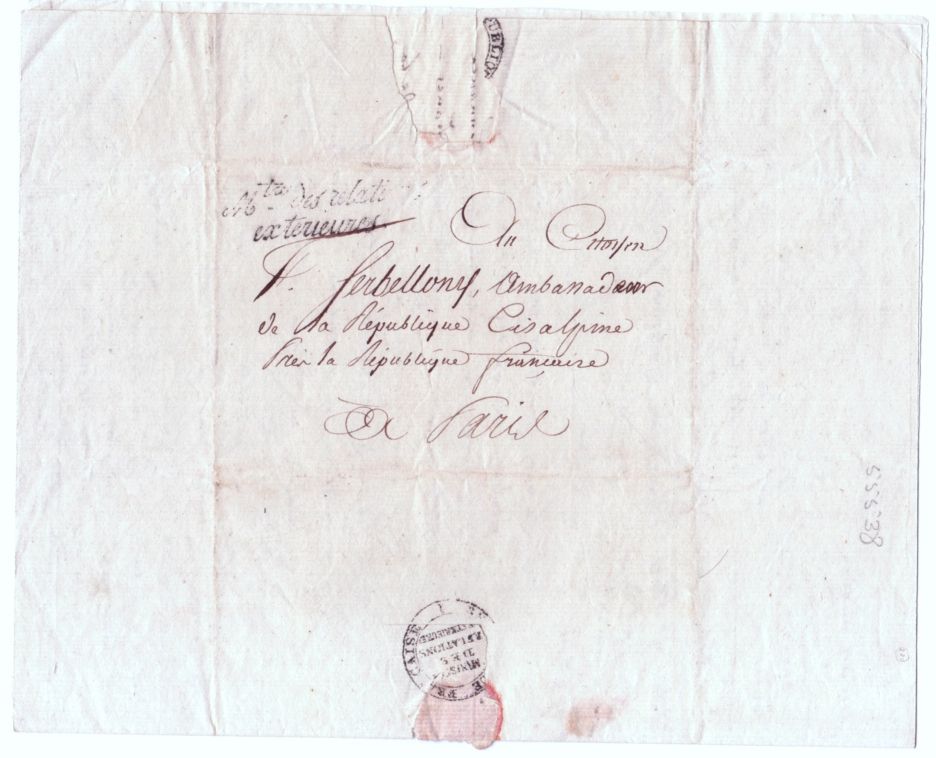 UBLIQ
Mtre des relati
extérieures
Au Citoyen
F. Serbellony, Ambassadeur
de la République Cisalpine
Près la République française
A Paris
55538
MINIS
DES
RELATIONS
EXTÉRIEURES